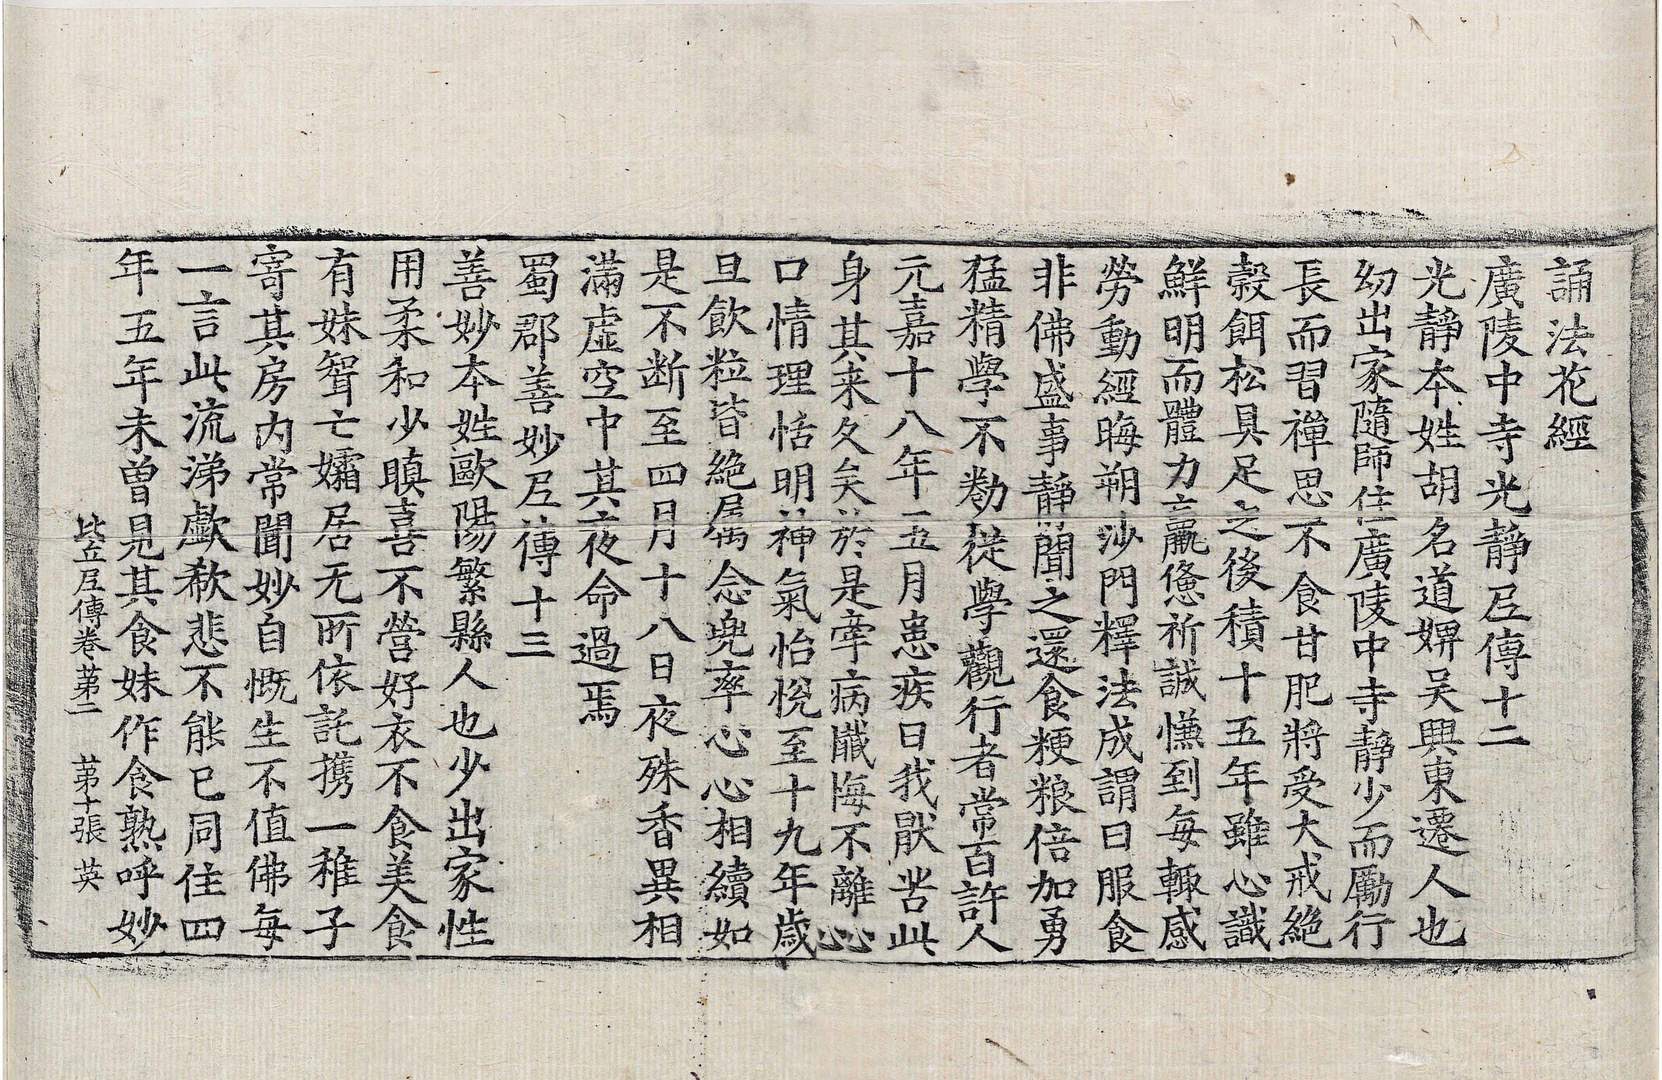 誦法花經
廣陵中寺光静尼傳十二
光静本姓胡名道婢吴興東遷人也
幼出家隨師住廣陵中寺静少而勵行
長而習禪思不食甘肥將受大戒絶
穀餌松具足之後積十五年雖心識
鮮明而體力羸憊祈誠慊到每輙感
勞動經晦朔沙門釋法成謂曰服食
非佛盛事静聞之還食粳粮倍加勇
猛精學不勌從學觀行者常百許人
元嘉十八年五月患疾曰我猒苦此
身其来久矣於是牽病懺悔不離心
口情理恬明神氣怡悅至十九年歲
旦飲粒皆絶屬念兜率心心相續如
是不断至四月十八日夜殊香異相
滿虚空中其夜命過焉
蜀郡善妙尼傳十三
善妙本姓歐陽繁縣人也少出家性
用柔和少瞋喜不營好衣不食美食
有妹壻亡孀居无所依託携一稚子
寄其房内常聞妙自慨生不值佛每
一言此流涕歔欷悲不能已同住四
年五年未曽見其食妹作食熟呼妙
比丘尼傳卷苐二 苐十張 英